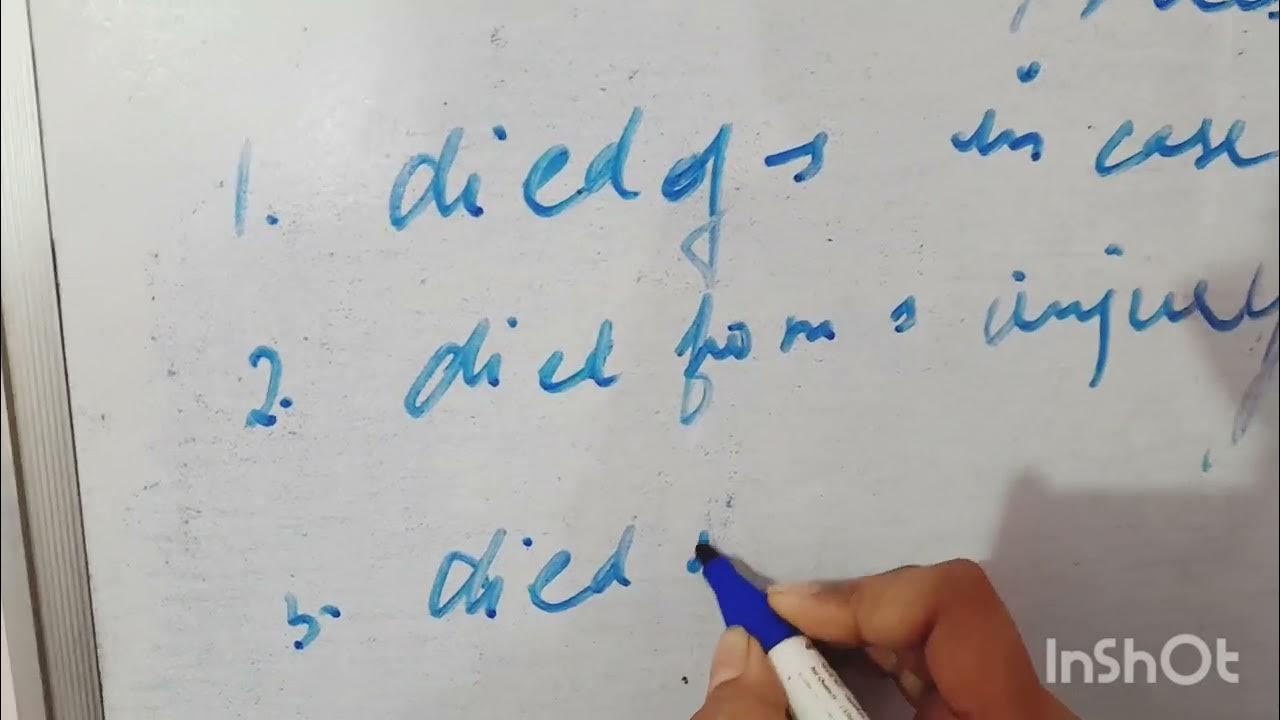 1. died of → in case
2. died from → injury
3. died
InShOt